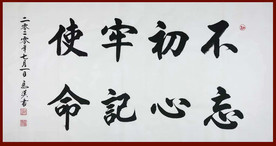 不忘
初心
牢記
使命
二零二零年七月一日 書